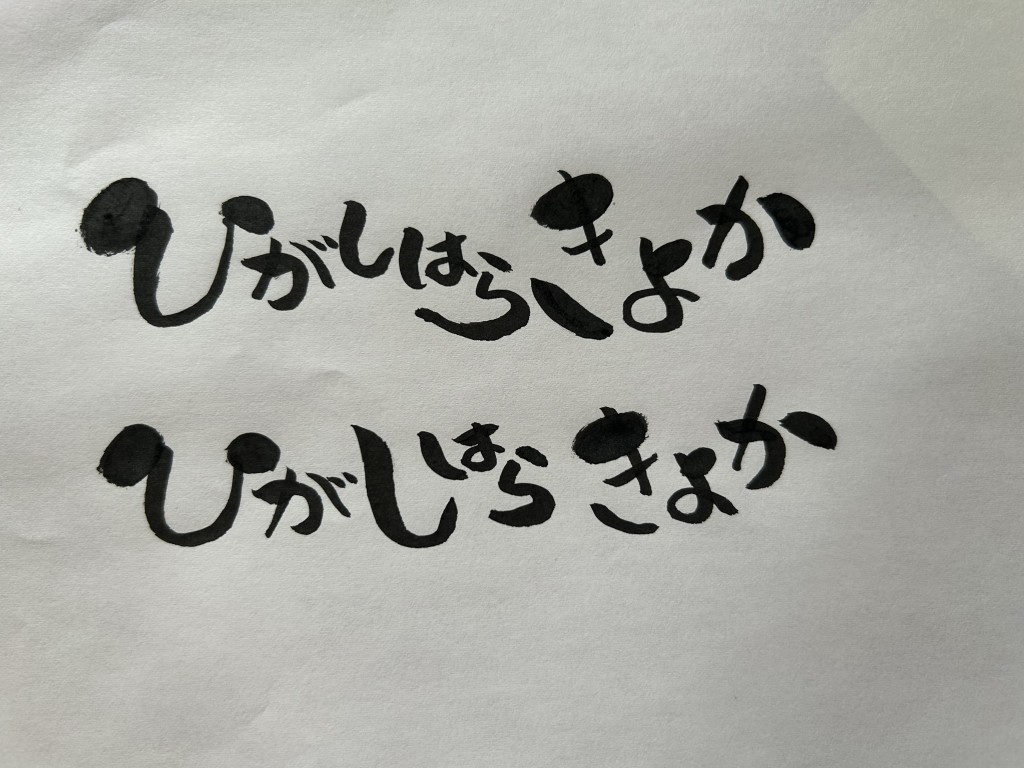 ひがしはらきよか
ひがしはらきよか